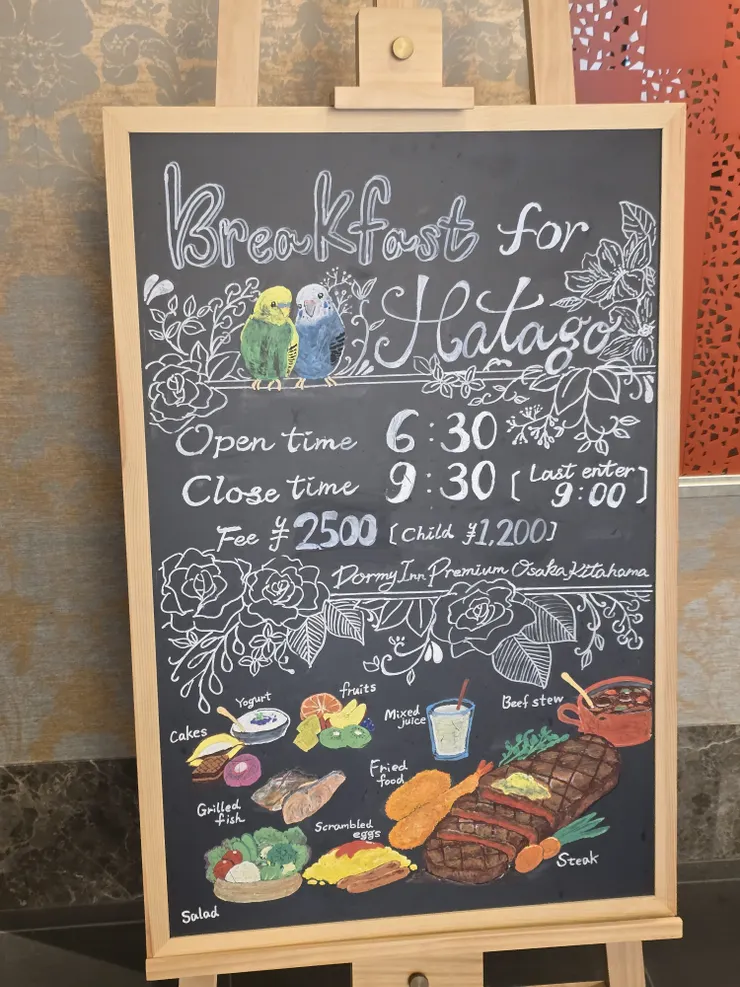 Breakfast for
Hatago
Open time 6:30
Close time 9:30 [Last enter 9:00]
Fee ¥2500 [Child ¥1,200]
Dormy Inn Premium Osaka Kitahama
Yogurt
fruits
Cakes
Mixed juice
Beef stew
Grilled fish
Fried food
Scrambled eggs
Steak
Salad